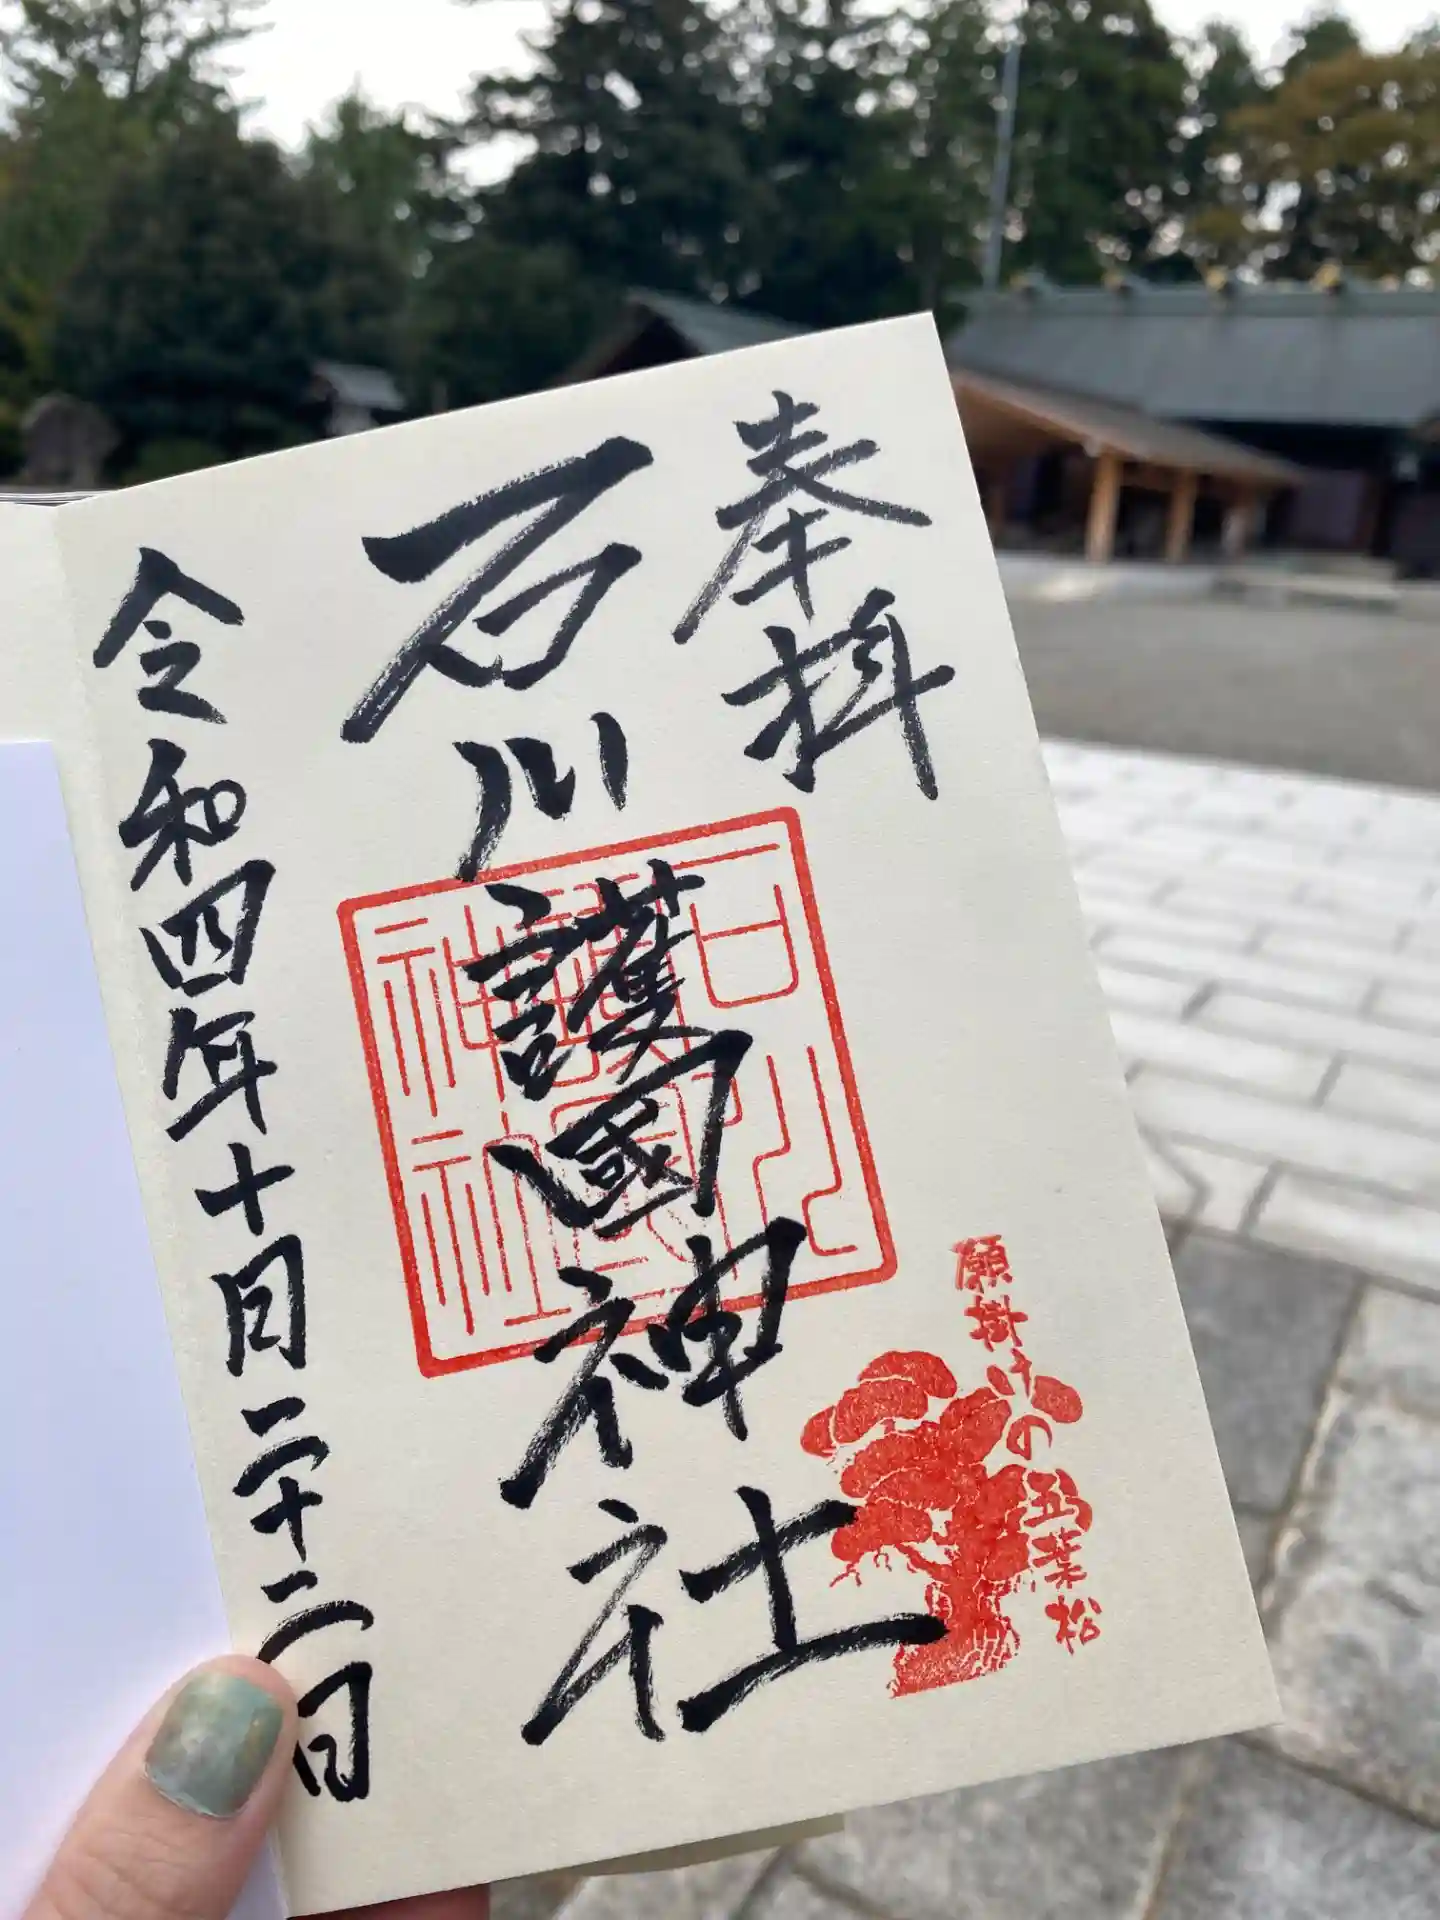 奉拝
石川護國神社
令和四年十月二十二日
石川護國神社
願掛けの五葉松